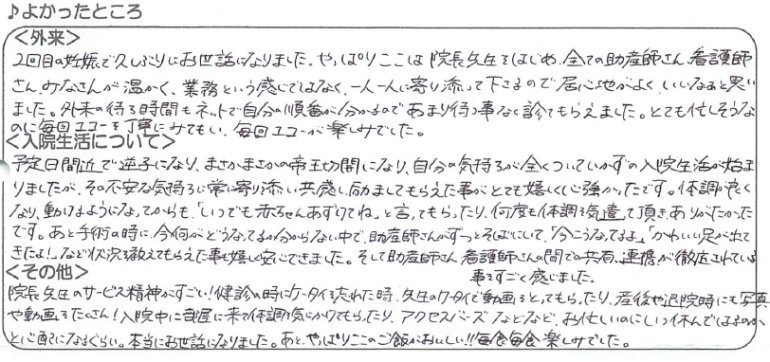 ♪よかったところ
<外来>
2回目の妊娠で久しぶりにお世話になりました。やっぱりここは院長先生をはじめ、全ての助産師さん、看護師
さん、みなさんが温かく、業務という感じではなく、一人一人に寄り添って下さるので居心地がよく、いいなぁと思い
ました。外来の待ち時間もネットで自分の順番が分かるのであまり待つ事なく診てもらえました。とても忙しそうな
のに毎回エコーを丁寧にみてもらい、毎回エコーが楽しみでした。
<入院生活について>
予定日間近で逆子になり、まさかまさかの帝王切開になり、自分の気持ちが全くついていかずの入院生活が始ま
りましたが、その不安な気持ちに常に寄り添い共感し励ましてもらえた事がとても嬉しく心強かったです。体調が良く
なり、動けるようになってからも、「いつでも赤ちゃんあずけてね」と言ってもらったり、何度も体調を気遣って頂き、ありがたかった
です。あと手術の時に、今何がどうなってるか分からない中で、助産師さんがずっとそばにいて、「今こうなってるよ」「かわいい足が出て
きたよ!」など状況を教えてもらえた事も嬉しく安心できました。そして助産師さん、看護師さんの間での共有、連携が徹底されている
事をすごく感じました。
<その他>
院長先生のサービス精神がすごい!健診の時にケータイを忘れた時、先生のケータイで動画をとってもらったり、産後や退院時にも写真
や動画をたくさん!入院中に部屋に来て体調を気にかけてもらったり、アクセスバーズなどなど、お忙しいのにいつ休んではるのか、
と心配になるくらい。本当にお世話になりました。あと、やっぱりここのご飯がおいしい!!毎食毎食楽しみでした。